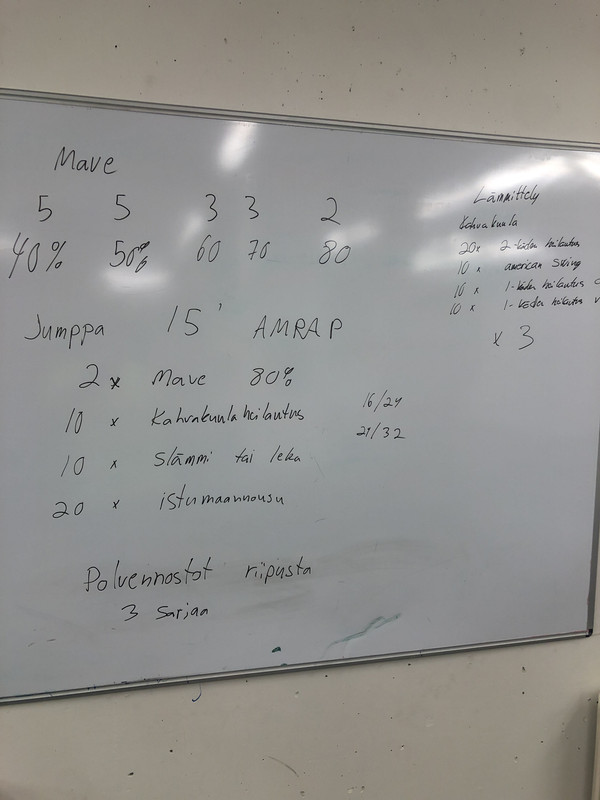 Mave
5 5 3 3 2
40% 50% 60 70 80
Jumppa 15' AMRAP
2 x Mave 80%
10 x Kahvakuulaheilautus 16/24
24/32
10 x Slämmi tai leka
20 x istumaannousu
Polvennostot riipusta
3 sarjaa
Lämmittely
Kahvakuula
20x 2-käden heilautus
10 x american swing
10 x 1-käden heilautus o
10 x 1-käden heilautus v
x 3